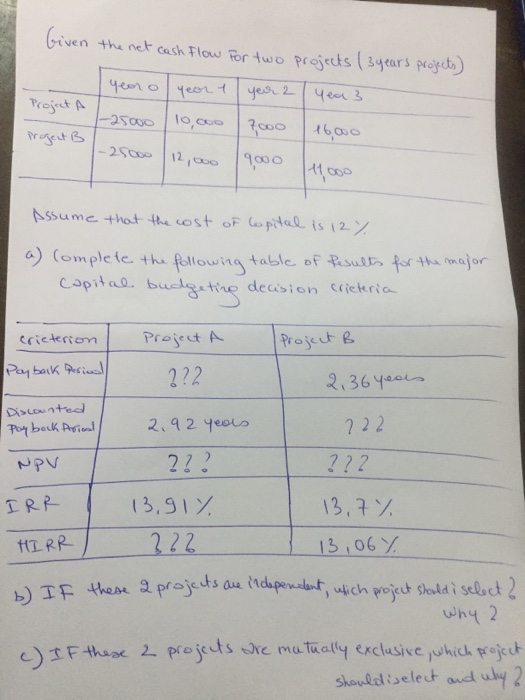 Given the net cash flow for two projects (3 years projects)
year 0 year 1 year 2 year 3
Project A -25000 10,000 7,000 16,000
Project B -25000 12,000 9,000 11,000
Assume that the cost of capital is 12%
a) Complete the following table of Results for the major
capital budgeting decision crieteria
crieterion Project A Project B
Pay back Period ??? 2,36 years
Discounted
Pay back Period 2,92 years ???
NPV ??? ???
IRR 13,91% 13,7%
MIRR ??? 13,06%
b) IF these 2 projects are independent, which project should i select?
why?
c) IF these 2 projects are mutually exclusive, which project
should i select and why?